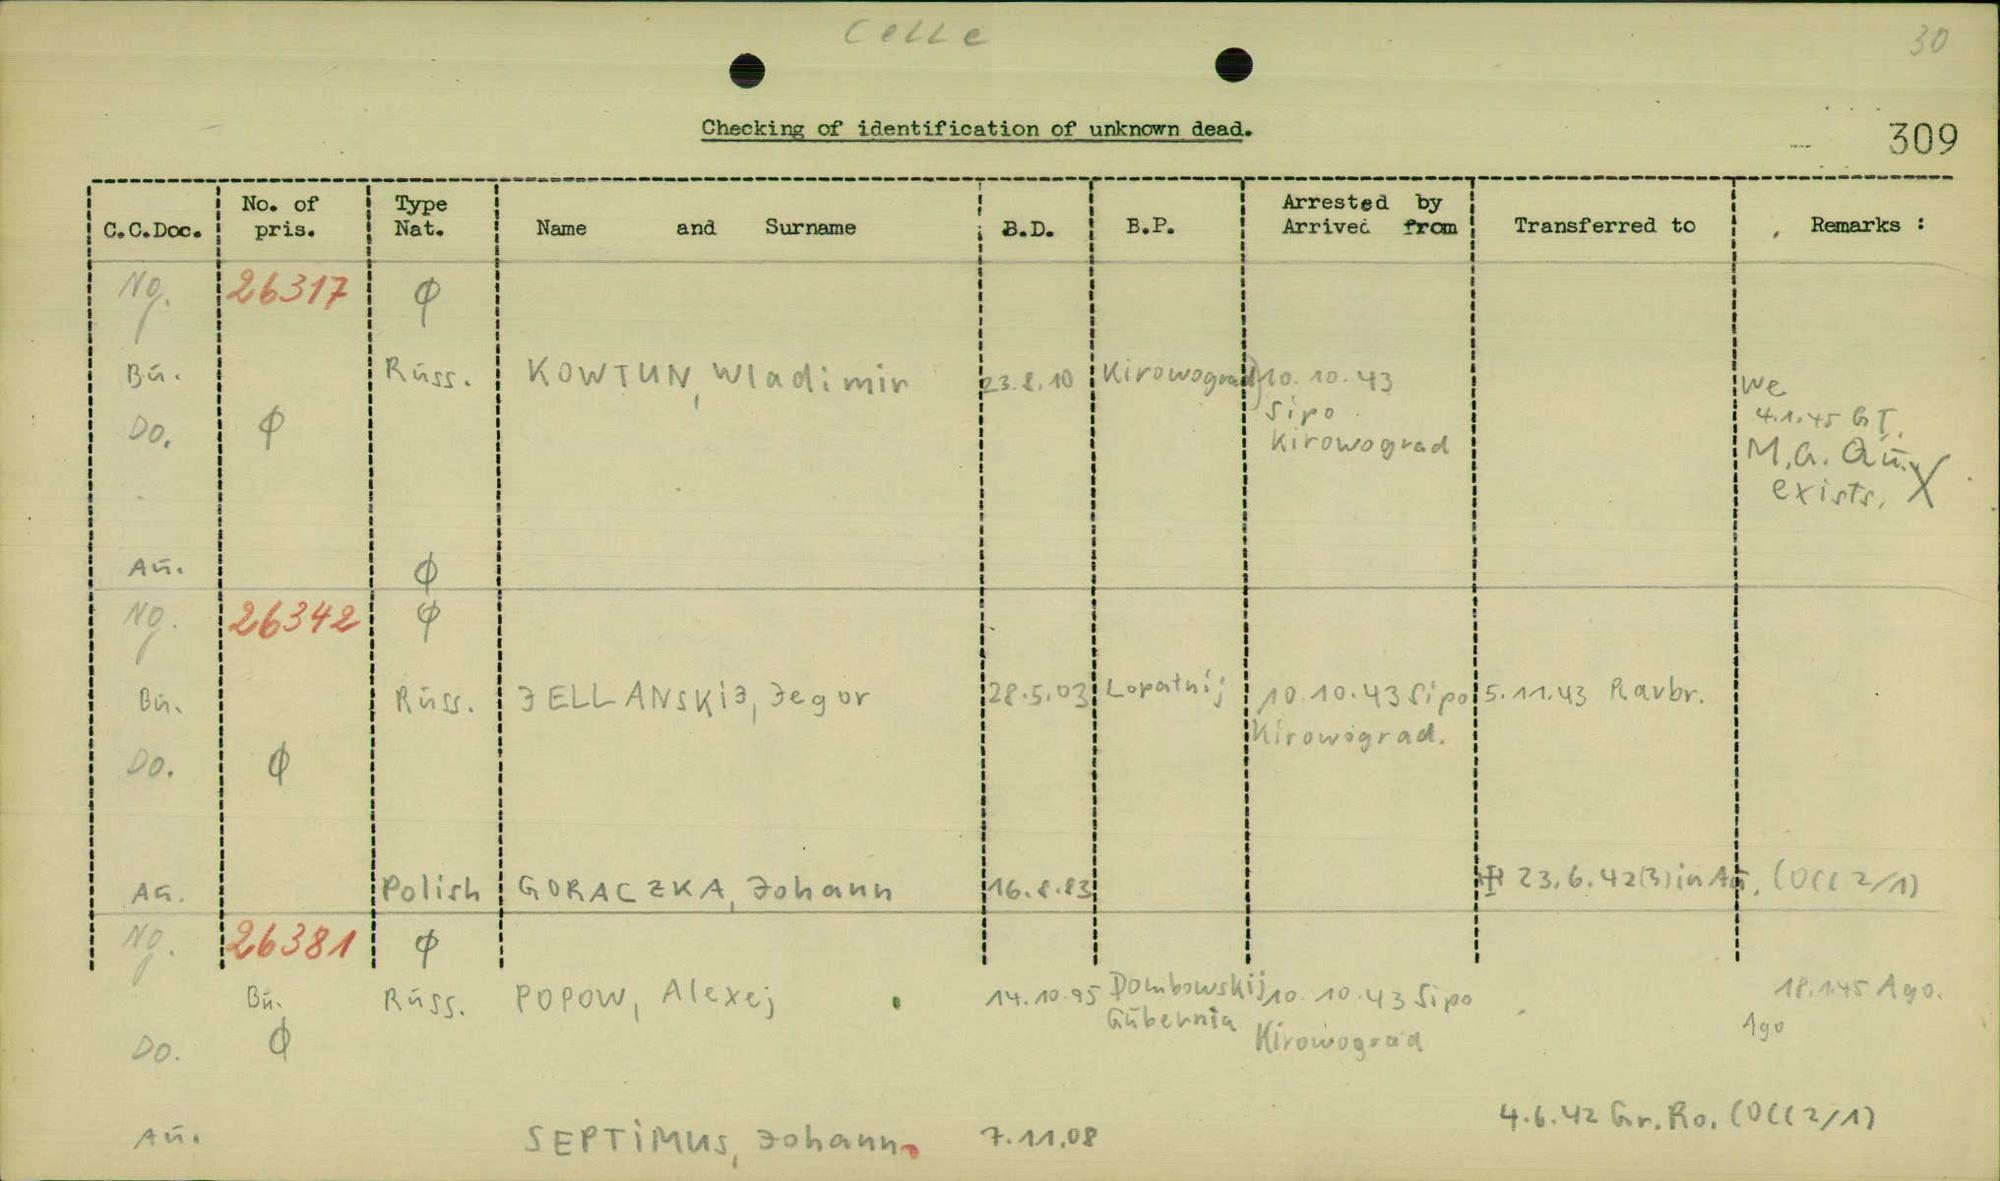 Celle
30
Checking of identification of unknown dead.
309
C.C.Doc. No. of pris. Type Nat. Name and Surname B.D. B.P. Arrested by Arrived from Transferred to Remarks :
Ng. 26317 φ
Bu. Russ. KOWTUN, Wladimir 23.8.10 Kirowograd 10.10.43 We
Sipo 4.1.45 GT.
Do. φ Kirowograd M.G. Qu.
exists. X
Au. φ
Ng. 26342 φ
Bu. Russ. JELLANSKiJ, Jegor 28.5.03 Lopatnij 10.10.43 Sipo 5.11.43 Ravbr.
Kirowograd.
Do. φ
Au. Polish GORACZKA, Johann 16.8.83 23.6.42(3) in Au. (OCC 2/1)
Ng. 26381 φ
Bu. Russ. POPOW, Alexej 14.10.95 Dombowskij 10.10.43 Sipo 18.1.45 Ago.
Gubernia Ago
Do. φ Kirowograd
4.6.42 Gr.Ro. (OCC 2/1)
Au. SEPTiMUS, Johann 7.11.08